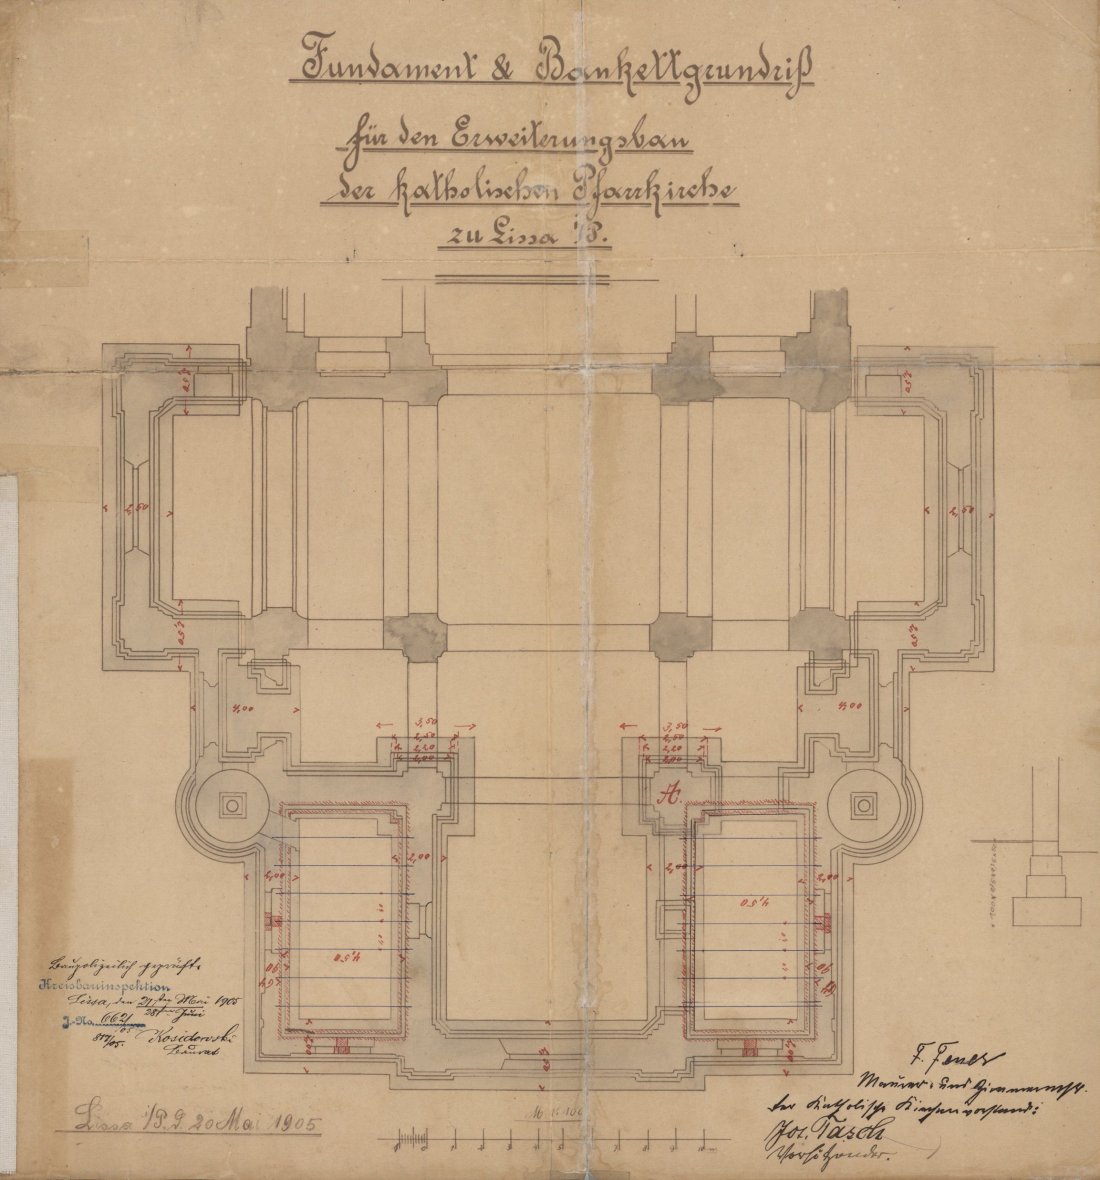 Fundament & Bankettgrundriß
für den Erweiterungsbau
der katholischen Pfarrkirche
zu Lissa i/P.
1,50
1,50
2,50
2,50
1,50
1,50
4,00
4,00
3,50
2,50
2,20
2,00
3,50
2,50
2,20
2,00
A.
2,00
2,00
2,00
2,00
4,50
4,50
90
90
Baupolizeilich geprüft.
Kreisbauinspektion
Lissa, den 27. Mai 1905
28 Juni
J.-No. 662/05
Kosidowski
Baurat
Maurer- und Zimmermstr.
der Katholische Kirchenvorstand:
Jos. Tasch
Vorsitzender.
Lissa i/P. d 20 Mai 1905
M. 1:100